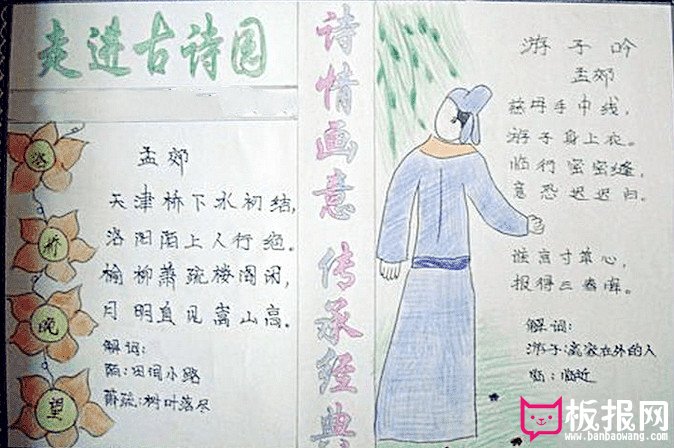 走进古诗园
洛
桥
晚
望
孟郊
天津桥下冰初结,
洛阳陌上人行绝。
榆柳萧疏楼阁闲,
月明直见嵩山高。
解词:
陌:田间小路
萧疏:树叶落尽
诗情画意 传承经典
游子吟
孟郊
慈母手中线,
游子身上衣。
临行密密缝,
意恐迟迟归。
谁言寸草心,
报得三春晖。
解词:
游子:离家在外的人
临:临近
板报网
www.banbaowang.com